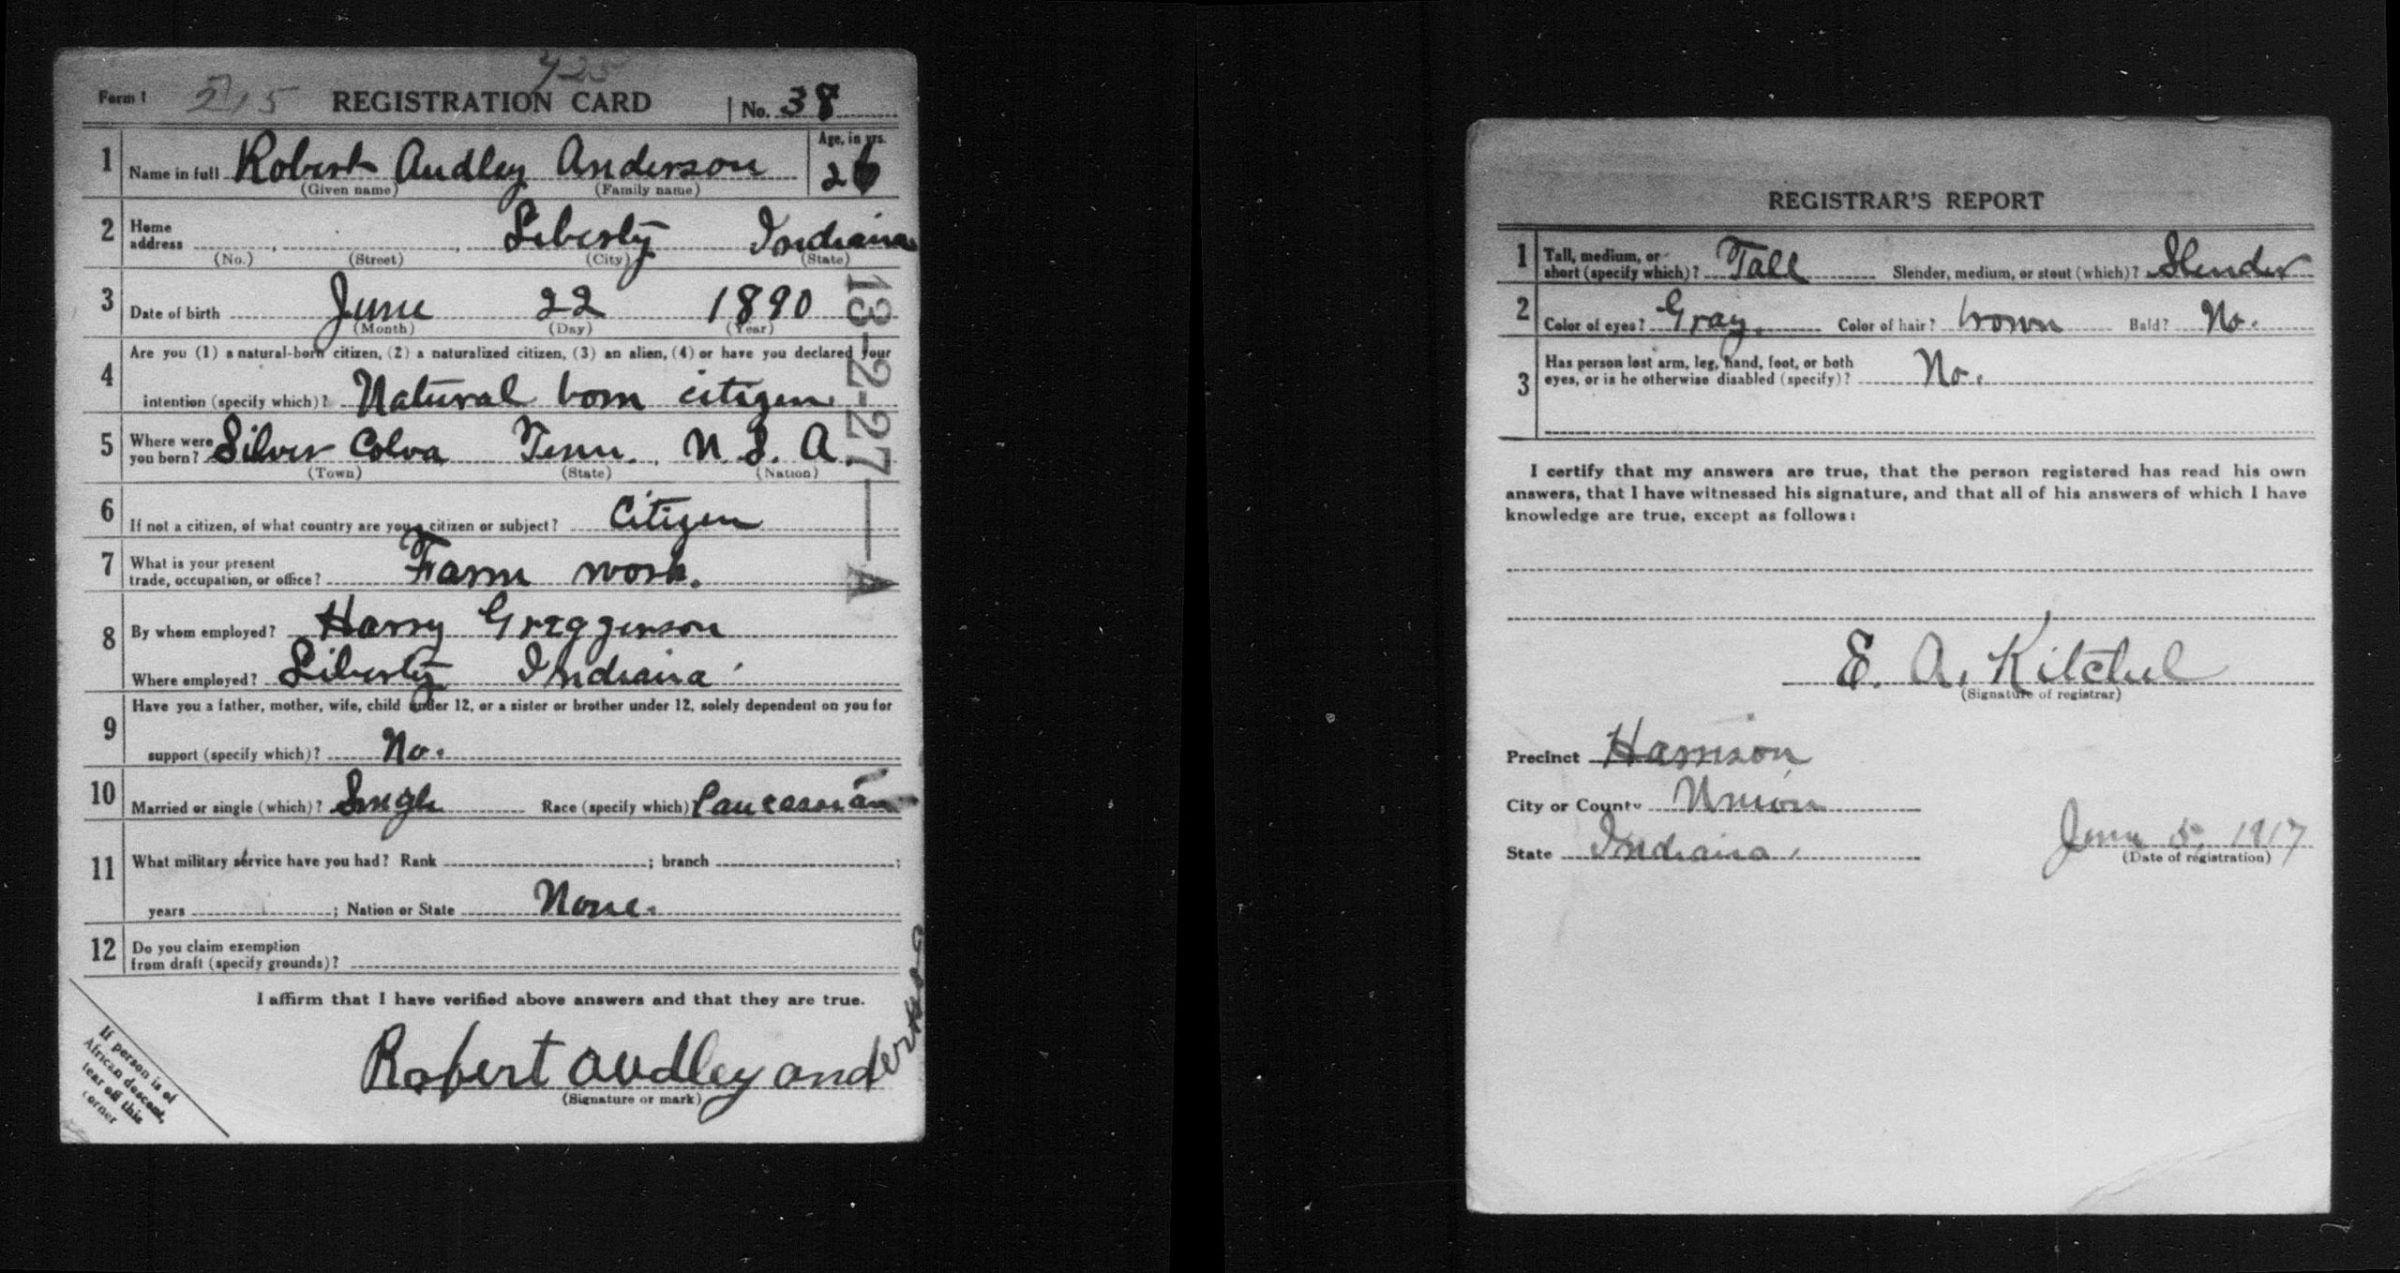 Form 1 215 REGISTRATION CARD 425 No. 38
1 Name in full Robert Audley Anderson Age, in yrs. 26
(Given name) (Family name)
2 Home address Liberty Indiana
(No.) (Street) (City) (State)
3 Date of birth June 22 1890
(Month) (Day) (Year)
4 Are you (1) a natural-born citizen, (2) a naturalized citizen, (3) an alien, (4) or have you declared your
intention (specify which)? Natural born citizen
5 Where were you born? Silver Colva Tenn. U. S. A.
(Town) (State) (Nation)
6 If not a citizen, of what country are you a citizen or subject? Citizen
7 What is your present
trade, occupation, or office? Farm work.
8 By whom employed? Harry Greggerson
Where employed? Liberty Indiana
9 Have you a father, mother, wife, child under 12, or a sister or brother under 12, solely dependent on you for
support (specify which)? No.
10 Married or single (which)? Single Race (specify which) Caucassian
11 What military service have you had? Rank ; branch ;
years ; Nation or State None.
12 Do you claim exemption
from draft (specify grounds)?
I affirm that I have verified above answers and that they are true.
Robert Audley anderson
(Signature or mark)
If person is of
African descent,
tear off this
corner
13-2-27-A
REGISTRAR'S REPORT
1 Tall, medium, or
short (specify which)? Tall Slender, medium, or stout (which)? Slender
2 Color of eyes? Gray. Color of hair? brown Bald? No.
3 Has person lost arm, leg, hand, foot, or both
eyes, or is he otherwise disabled (specify)? No.
I certify that my answers are true, that the person registered has read his own
answers, that I have witnessed his signature, and that all of his answers of which I have
knowledge are true, except as follows:
E. A. Kitchel
(Signature of registrar)
Precinct Harrison
City or County Union
State Indiana. June 5, 1917
(Date of registration)